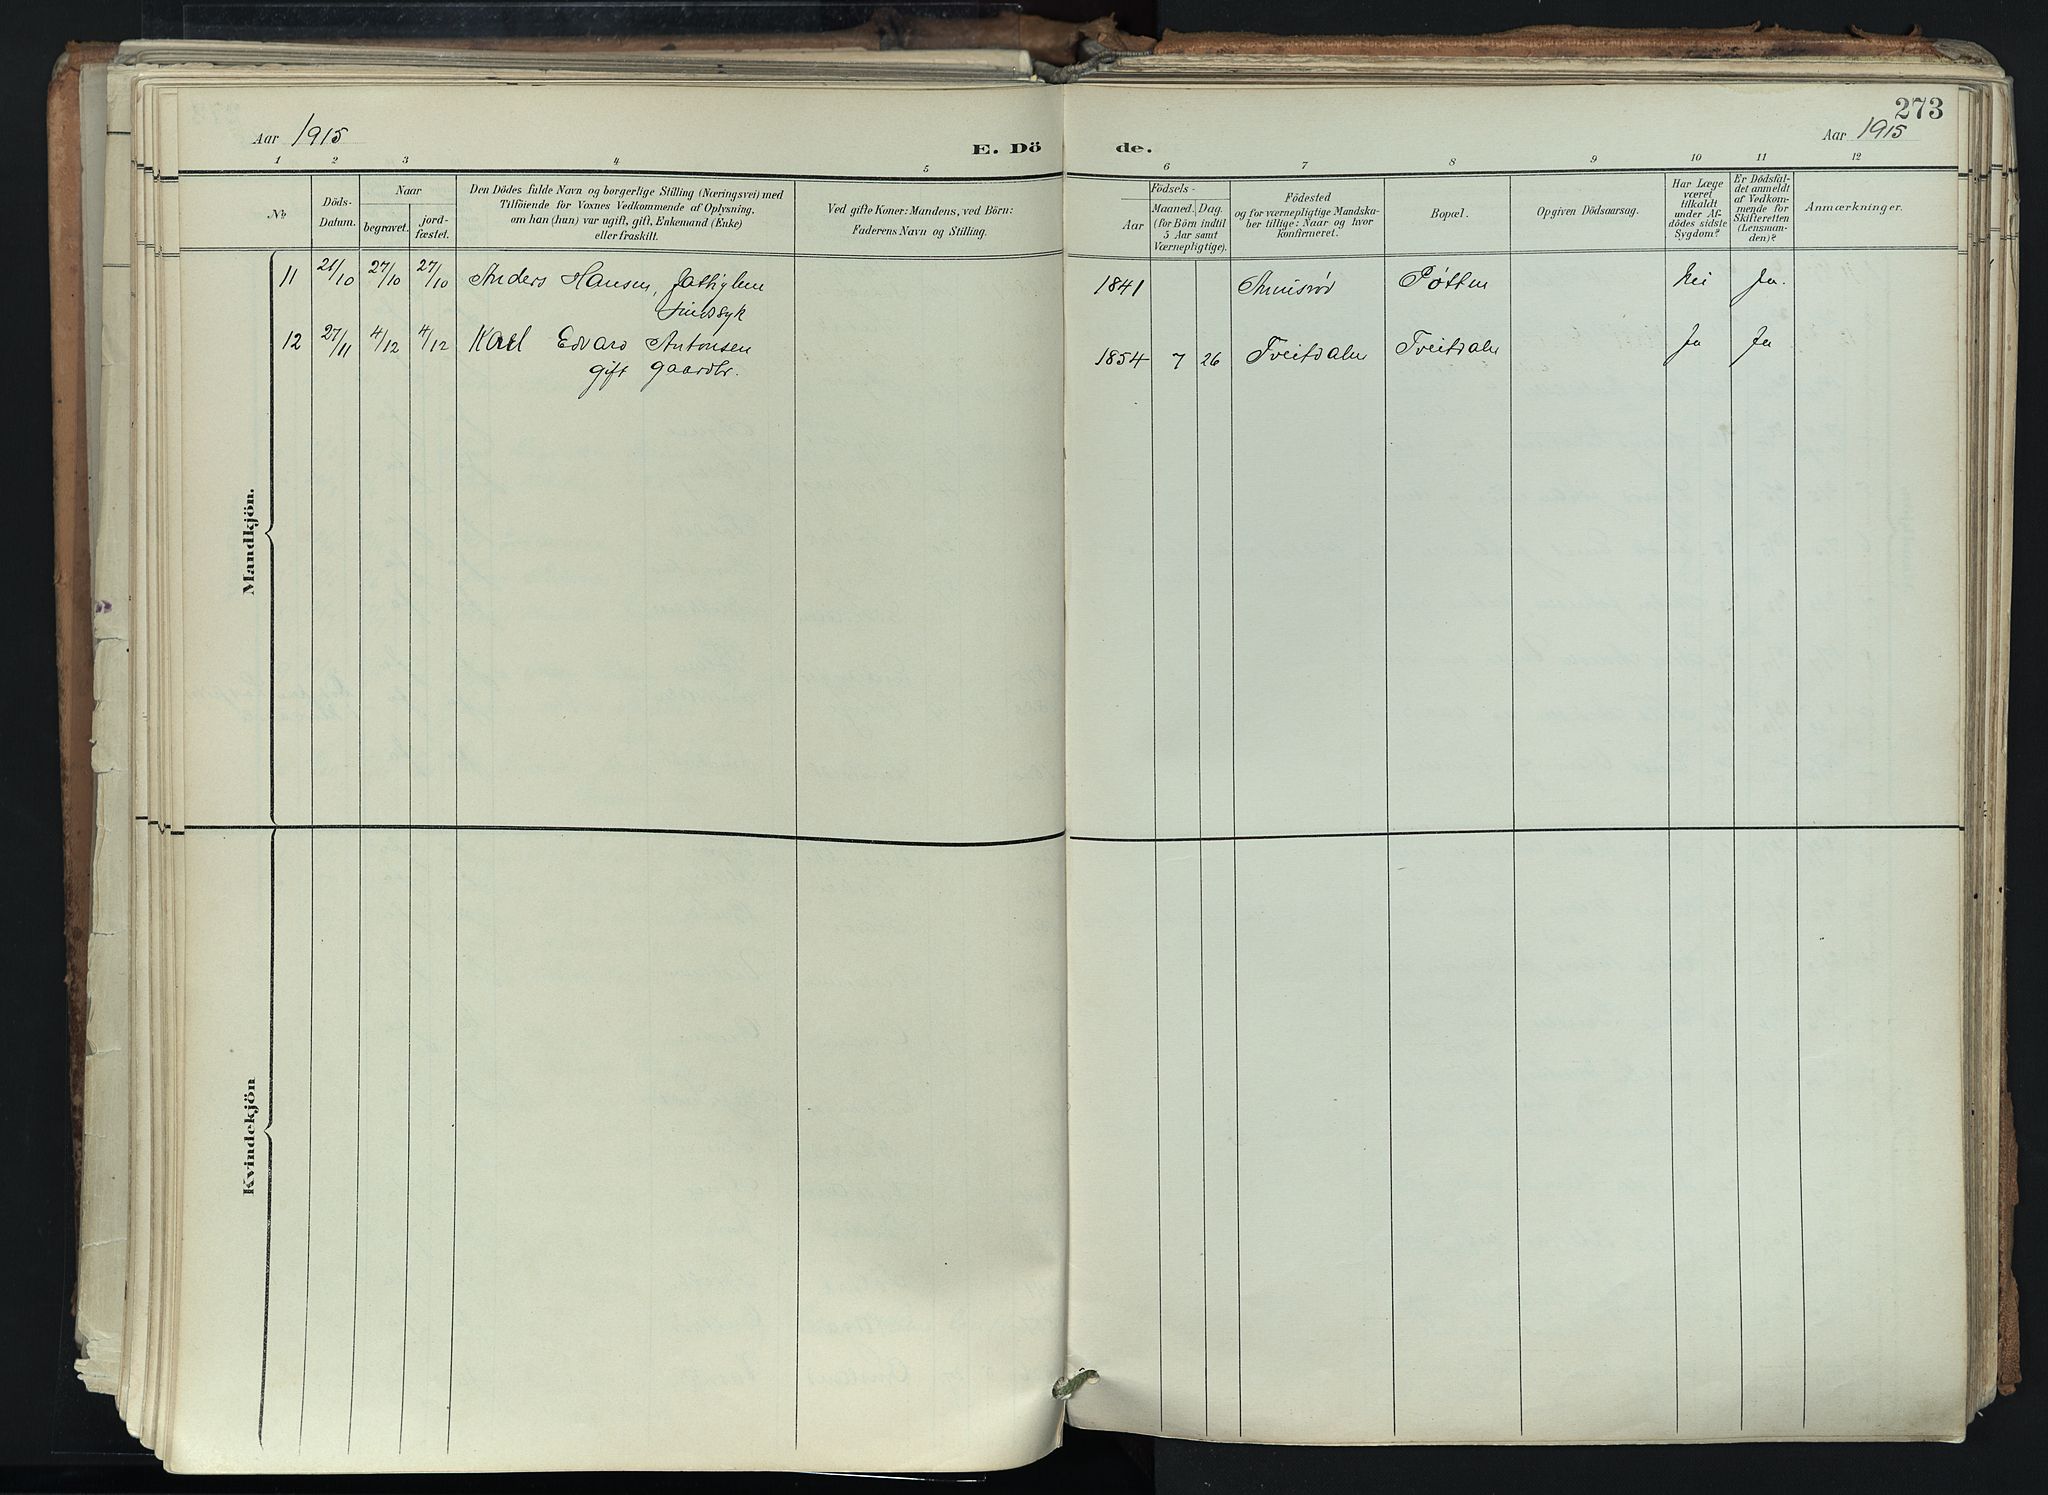 273
Aar 1915
Aar 1915
E. Dö
de.
1 2 3 4 5 6 7 8 9 10 11 12
No
Döds-
Datum.
Naar
begravet.
jord-
fæstet.
Den Dödes fulde Navn og borgerlige Stilling (Næringsvei) med
Tilföiende for Voxnes Vedkommende af Oplysning,
om han (hun) var ugift, gift, Enkemand (Enke)
eller fraskilt.
Ved gifte Koner: Mandens, ved Börn:
Faderens Navn og Stilling.
Födsels-
Aar
Maaned. Dag.
(for Börn indtil
5 Aar samt
Værnepligtige).
Födested
og for værnepligtige Mandska-
ber tillige: Naar og hvor
konfirmeret.
Bopæl.
Opgiven Dödsaarsag.
Har Læge
været
tilkaldt
under Af-
dödes sidste
Sygdom?
Er Dödsfal-
det anmeldt
af Vedkom-
mende for
Skifteretten
(Lensman-
den)?
Anmærkninger.
Mandkjön.
11 21/10 27/10 27/10 Anders Hansen, 1841 Nei Ja.
sindssyk
12 27/11 4/12 4/12 Karl Edvard Antonsen 1854 7 26 Tveitdalen Tveitdalen Ja Ja
gift gaardbr.
Kvindekjön